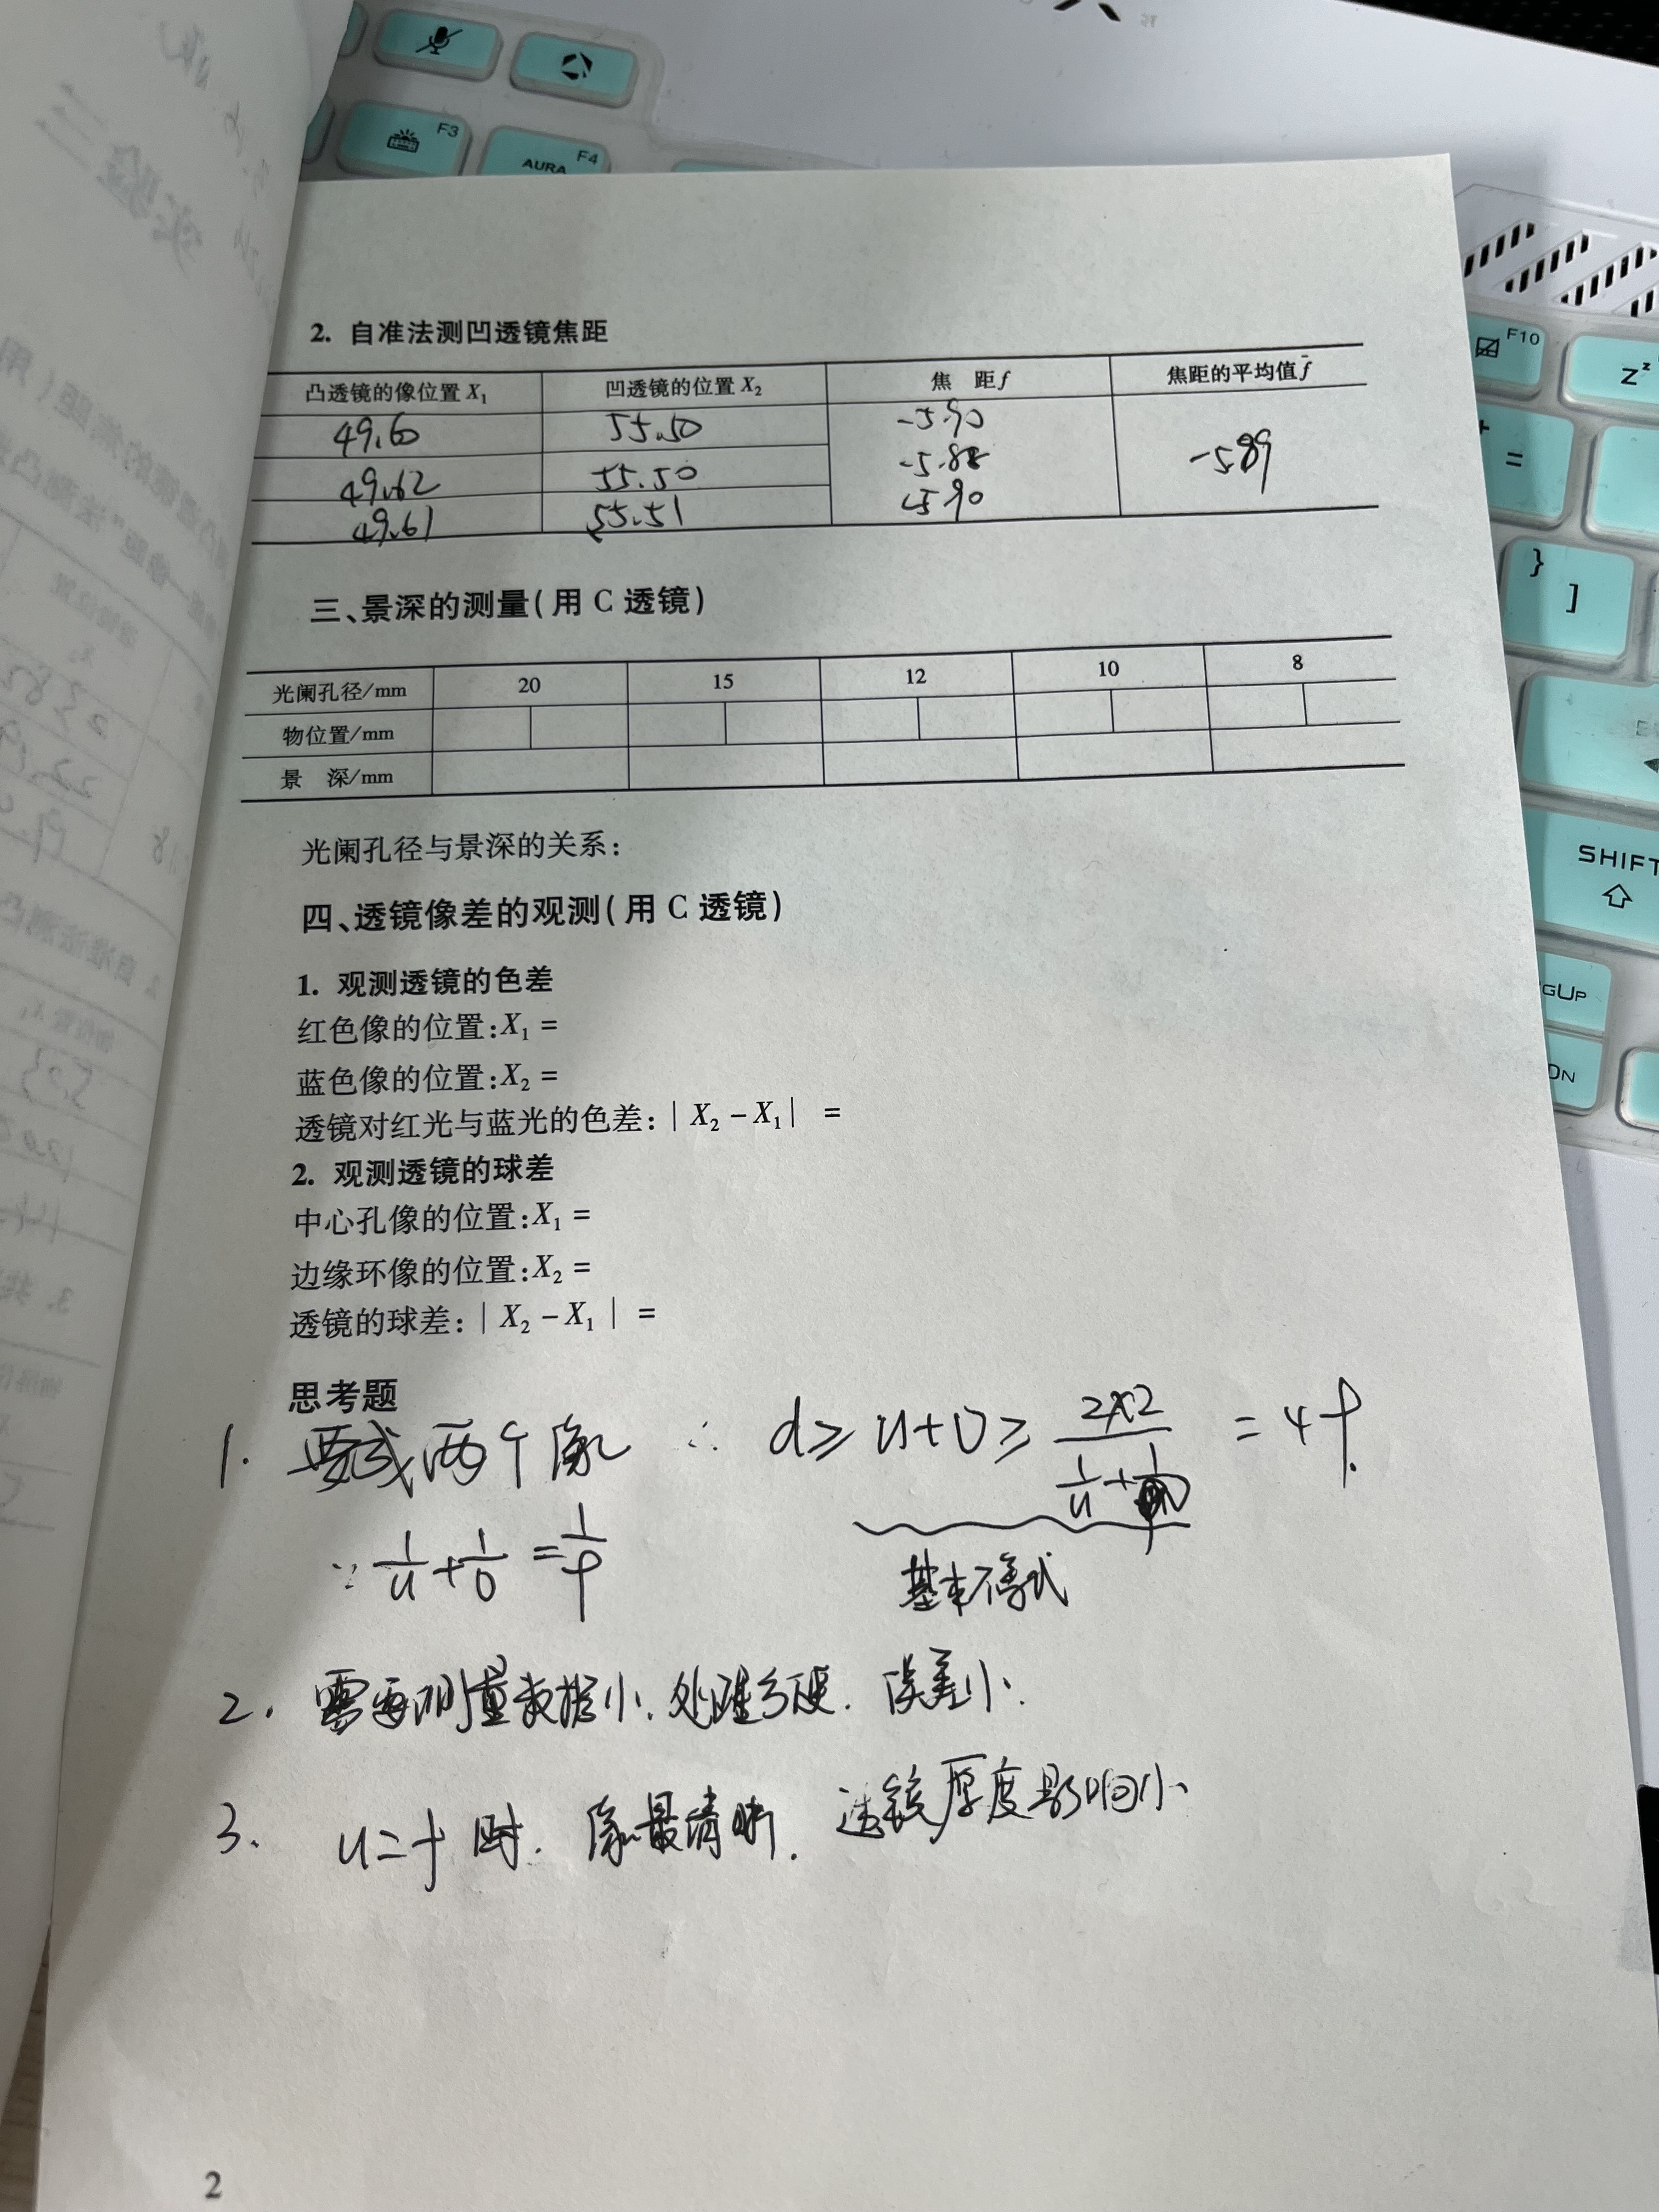 F3
AURA F4
F10
2. 自准法测凹透镜焦距
凸透镜的像位置 X₁ 凹透镜的位置 X₂ 焦 距 f 焦距的平均值 f̄
49.60 55.50 -5.90
49.62 55.50 -5.88 -5.89
49.61 55.51 -5.90
三、景深的测量(用 C 透镜)
光阑孔径/mm 20 15 12 10 8
物位置/mm
景 深/mm
光阑孔径与景深的关系:
四、透镜像差的观测(用 C 透镜)
1. 观测透镜的色差
红色像的位置:X₁ =
蓝色像的位置:X₂ =
透镜对红光与蓝光的色差:| X₂ - X₁ | =
2. 观测透镜的球差
中心孔像的位置:X₁ =
边缘环像的位置:X₂ =
透镜的球差:| X₂ - X₁ | =
思考题
1. 要成两个像 ∴ d ≥ u+v ≥ 2×2/(1/u+1/v) = 4f.
∵ 1/u + 1/v = 1/f 基本不等式
2. 需要测量数据小.处理方便.误差小.
3. u=f 时.像最清晰.透镜厚度影响小
2
=
} ]
SHIFT
GUP
DN